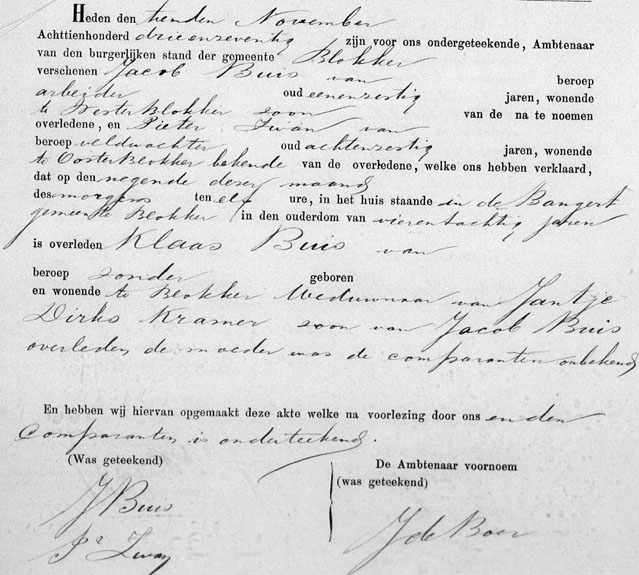 Heden den tienden November
Achttienhonderd drieenzeventig zijn voor ons ondergeteekende, Ambtenaar
van den burgerlijken stand der gemeente Blokker
verschenen Jacob Buis van beroep
arbeider oud eenenzestig jaren, wonende
te Westerblokker zoon van de na te noemen
overledene, en Pieter Zwan van
beroep veldwachter oud achtenzestig jaren, wonende
te Oosterblokker bekende van de overledene, welke ons hebben verklaard,
dat op den negende dezer maand
des morgens ten elf ure, in het huis staande in de Bangert
gemeente Blokker in den ouderdom van vierentachtig jaren
is overleden Klaas Buis van
beroep zonder geboren
en wonende te Blokker Weduwnaar van Jantje
Dirks Kramer zoon van Jacob Buis
overleden, de moeder was de comparanten onbekend
En hebben wij hiervan opgemaakt deze akte welke na voorlezing door ons en den
comparanten is onderteekend.
(Was geteekend)
J Buis
Pr Zwan
De Ambtenaar voornoem
(was geteekend)
J de Boer